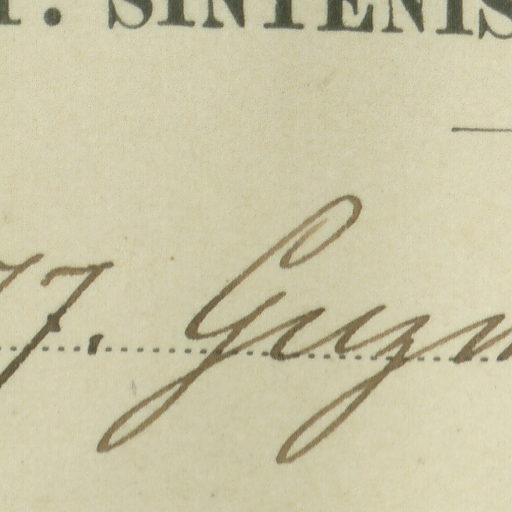 T. SINTENIS
77. Guzm